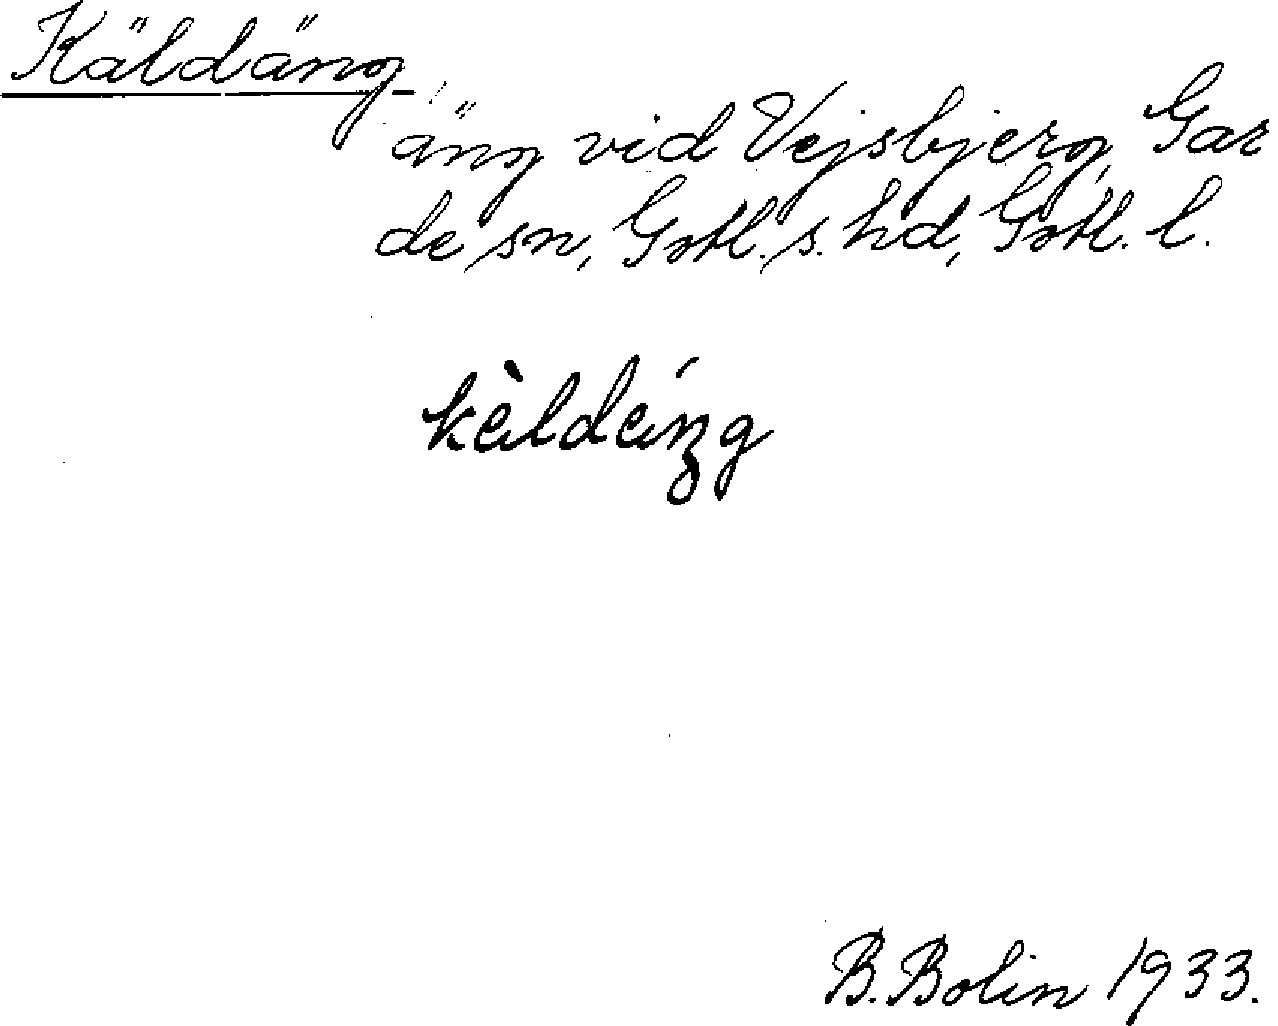 Käldäng
äng vid Vejsbjerg, Gar
de sn, Gotl. s. hd, Gotl. l.
kä̀ldä́ŋg
B. Bolin 1933.